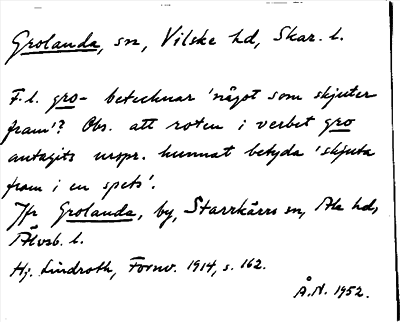 Grolanda, sn, Vilske hd, Skar. l.
F.l. gro- betecknar 'något som skjuter
fram'? Obs. att roten i verbet gro
antagits urspr. kunnat betyda 'skjuta
fram i en spets'.
Jfr Grolanda, by, Starrkärrs sn, Ale hd,
Älvsb. l.
Hj. Lindroth, Fornv. 1914, s. 162.
Å.N. 1952.